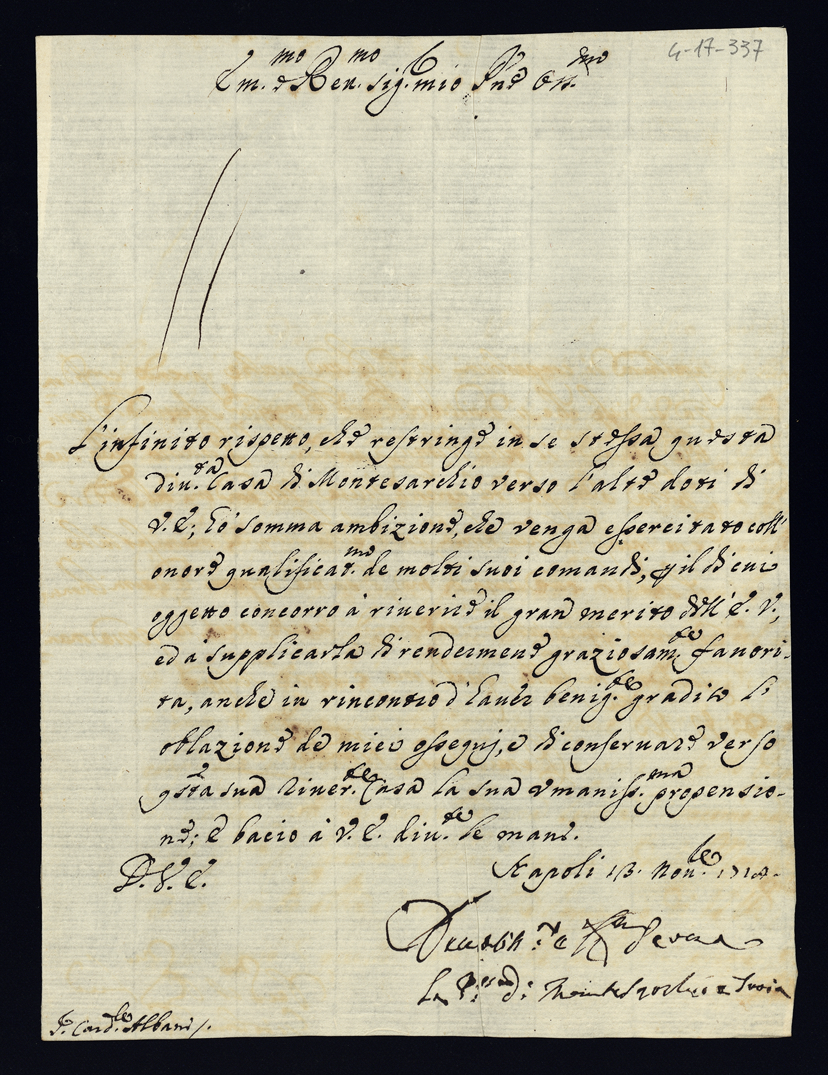 4-17-337
Em.mo e Reu.mo Sig. mio P.ne Oss.mo
L'infinito rispetto, che restringe in se stessa questa
diu.ta Casa di Montesarchio verso l'alte doti di
V.E; hà somma ambizione, che venga essercitato coll'
onore qualificat.mo de molti suoi comandi, p il di cui
oggetto concorro à riuerire il gran merito dell'E.V.,
ed à supplicarla di rendermene graziosam.te fauori-
ta, anche in rincontro d'hauer benig.te gradito l'
oblazione de miei ossequij, e di conseruare verso
q.sta sua riuer.te Casa la sua vmaniss.ma propensio-
ne; e bacio à V.E. diu.te le mani.
D.V.E.
Napoli 13. Nou.bre
Serua
La P.ssa di
S. Card.le Albani /.